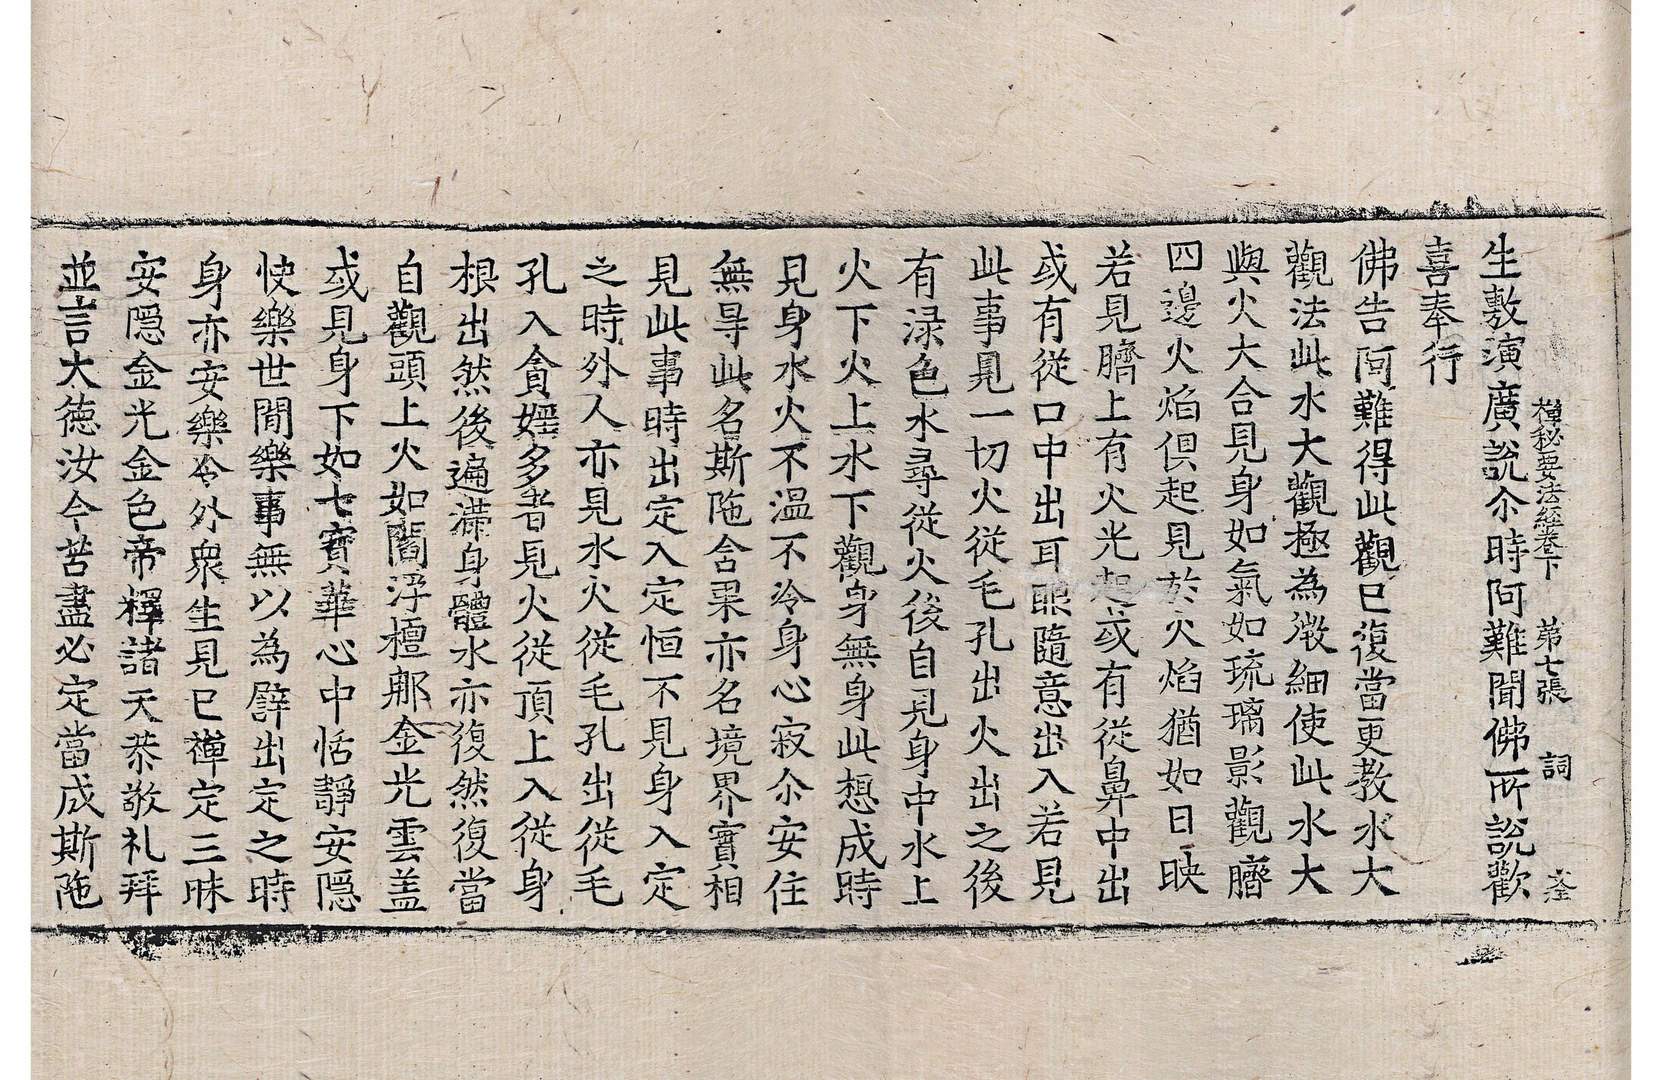 禪秘要法經卷下 第七張 詞 㘴
生敷演廣說尒時阿難聞佛所說歡
喜奉行
佛告阿難得此觀已復當更教水大
觀法此水大觀極為微細使此水大
與火大合見身如氣如琉璃影觀臍
四邊火焰俱起見於火焰猶如日映
若見臍上有火光起或有從鼻中出
或有從口中出耳眼隨意出入若見
此事見一切火從毛孔出火出之後
有渌色水尋從火後自見身中水上
火下火上水下觀身無身此想成時
見身水火不温不冷身心寂尒安住
無㝵此名斯陁含果亦名境界實相
見此事時出定入定恒不見身入定
之時外人亦見水火從毛孔出從毛
孔入貪婬多者見火從頂上入從身
根出然後遍滿身體水亦復然復當
自觀頭上火如閻浮檀那金光雲盖
或見身下如七寶華心中恬靜安隱
快樂世間樂事無以為譬出定之時
身亦安樂令外衆生見已禪定三昧
安隱金光金色帝釋諸天恭敬礼拜
並言大德汝今苦盡必定當成斯陁